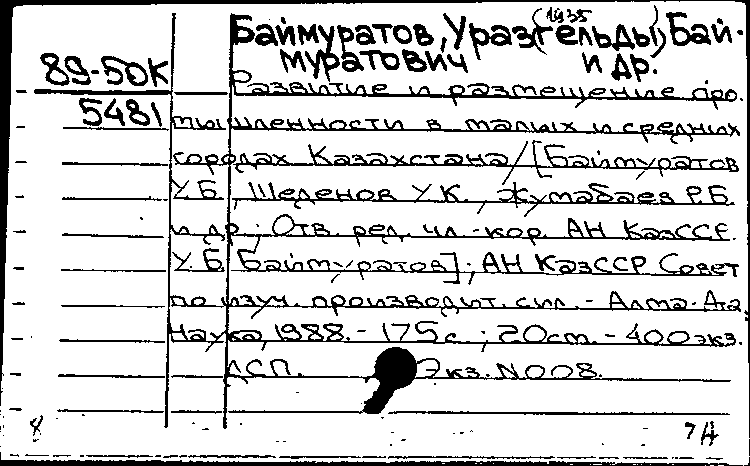 (1935
Баймуратов, Ураз(гельды) Бай-
муратович и др.
89-50К
5481
Развитие и размещение про-
мышленности в малых и средних
городах Казахстана/[Баймуратов
У.Б., Шеденов У.К., Жумабаев Р.Б.
и др.; Отв. ред. чл.-кор. АН КазССР
У.Б. Баймуратов]; АН КазССР Совет
по изуч. производит. сил. - Алма-Ата:
Наука, 1988. - 175с.; 20см. - 400экз.
ДСП. Экз. N008.
8